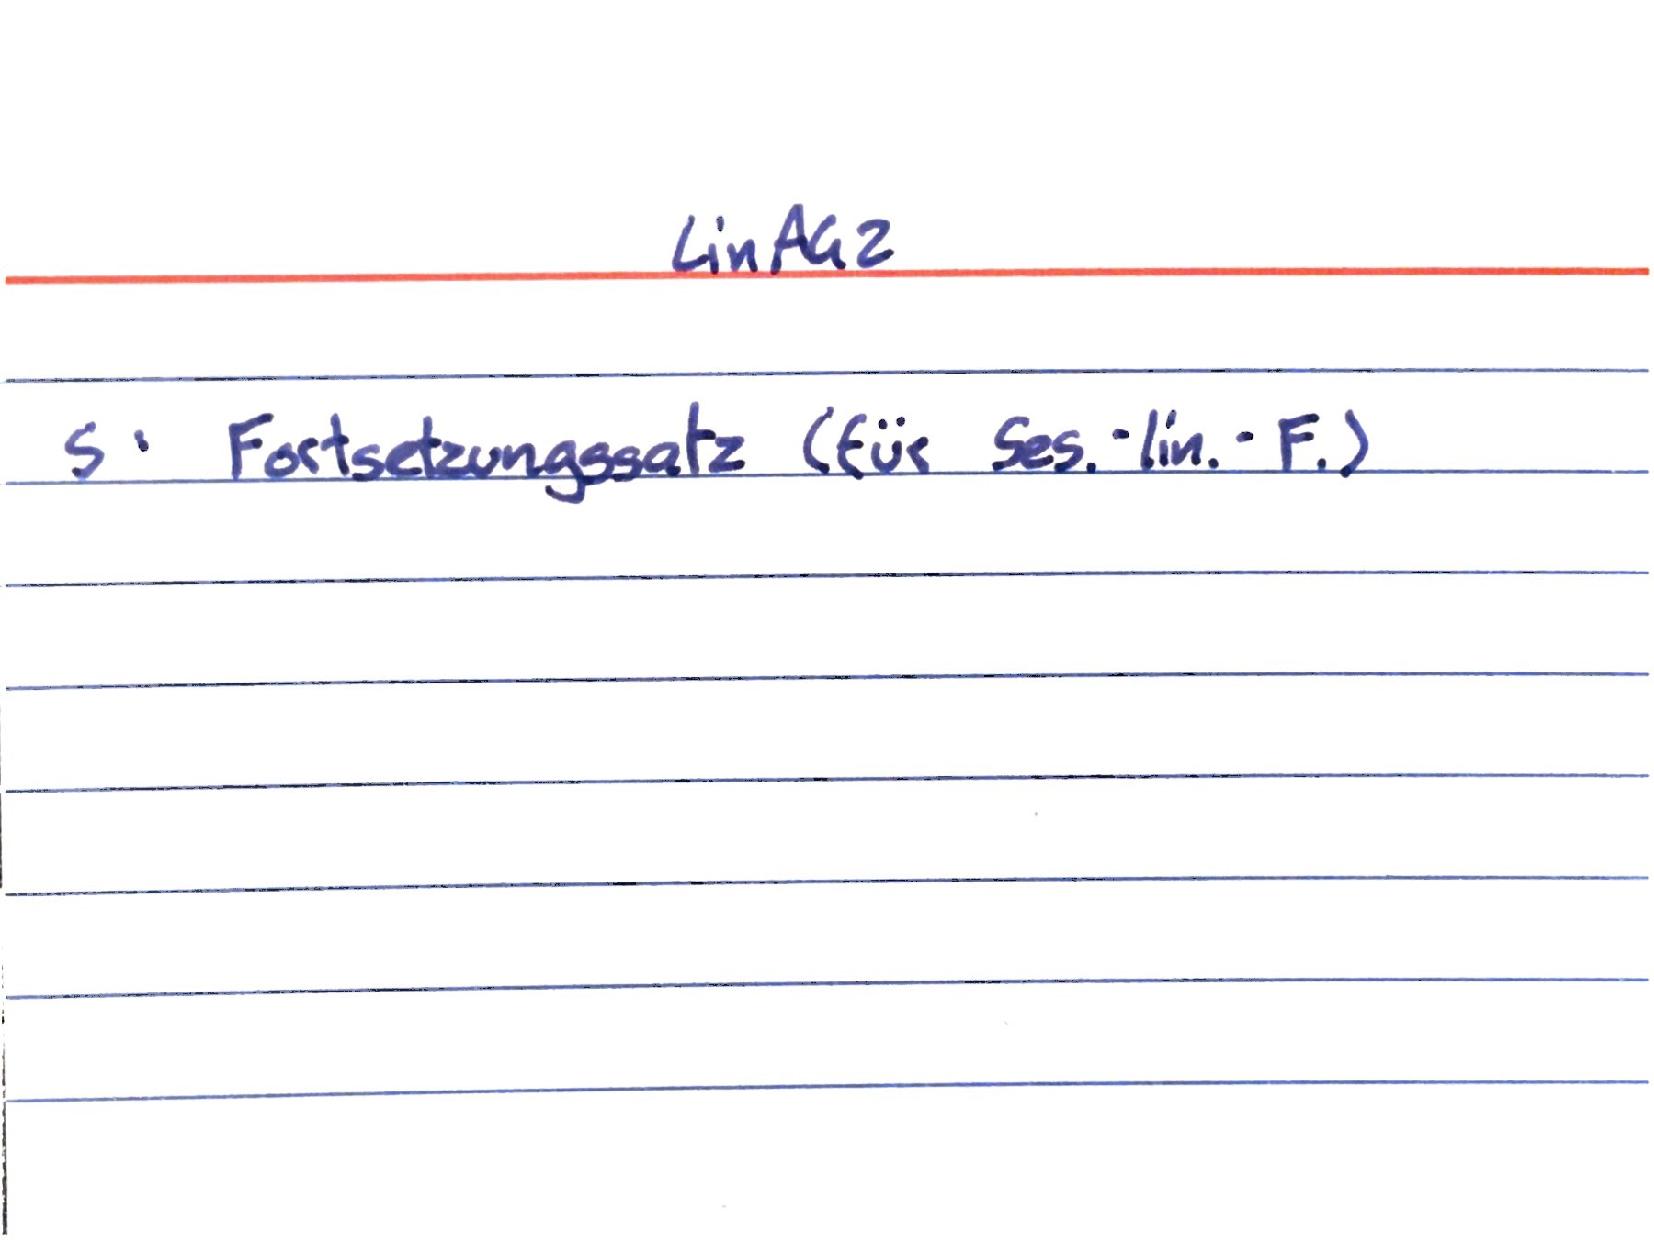 LinAG2
S: Fortsetzungssatz (für Ses.-lin.-F.)